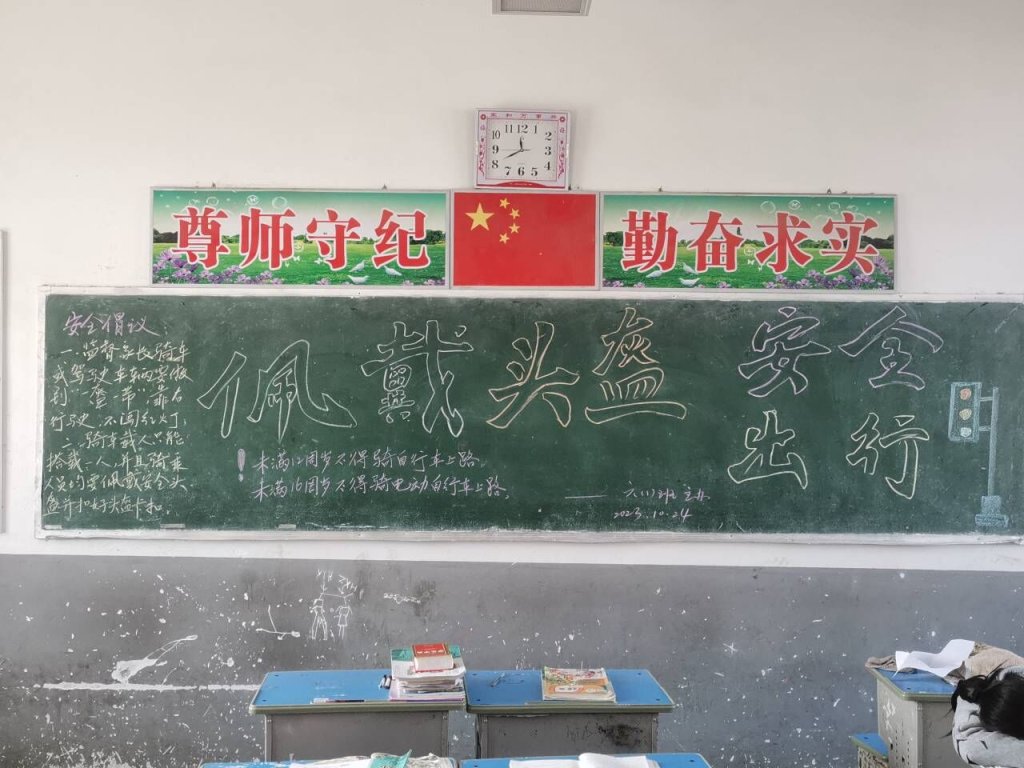 家和万事兴
福
福
11 12 1
10 2
9 3
8 4
7 6 5
尊师守纪
勤奋求实
安全倡议
一.监督家长骑车
或驾驶车辆要做
到一盔一带、靠右
行驶、不闯红灯、
二、骑车载人只能
搭载一人,并且骑乘
人员均要佩戴安全头
盔并扣好头盔卡扣。
佩戴头盔
安全
出行
! 未满12周岁不得骑自行车上路。
未满16周岁不得骑电动自行车上路。
——六(1)班 主办
2023.10.24